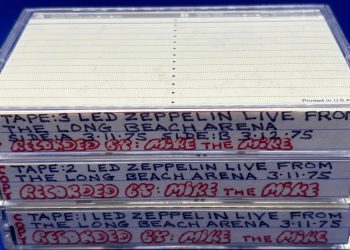 Printed in U.S.A
TAPE:3 LED ZEPPELIN LIVE FROM
THE LONG BEACH ARENA
SIDE:A 3·11·75 SIDE:B 3·12·75
RECORDED BY: MIKE THE MIKE
TAPE:2 LED ZEPPELIN LIVE FROM
THE LONG BEACH ARENA 3·11·75
RECORDED BY: MIKE THE MIKE
TAPE:1 LED ZEPPELIN LIVE FROM
THE LONG BEACH ARENA 3·11·75
RECORDED BY: MIKE THE MIKE